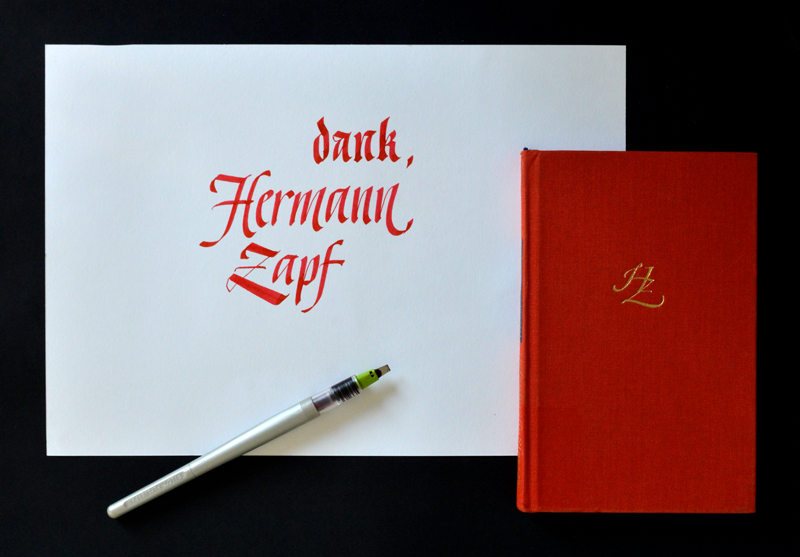 dank,
Hermann
Zapf
HZ